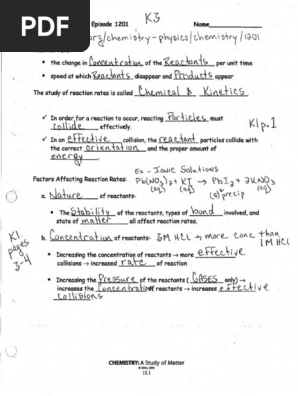 PDF
K3
Episode 1201
Name
org/chemistry-physics/chemistry/1201
• the change in Concentration of the Reactants per unit time
• speed at which Reactants disappear and Products appear
The study of reaction rates is called Chemical & Kinetics
✓ In order for a reaction to occur, reacting Particles must
collide effectively.
K1p.1
✓ In an effective collision, the reactant particles collide with
the correct orientation and the proper amount of
energy.
Ex - Ionic Solutions
Pb(NO3)2 + KI → PbI2 + 2KNO3
(aq) (aq) (s) (aq)
Factors Affecting Reaction Rates:
precip
a. Nature of reactants-
• The Stability of the reactants, types of bond involved, and
state of matter all affect reaction rates.
K1
pages
3-4
b. Concentration of reactants- 3M HCl → more conc than
1M HCl
• Increasing the concentration of reactants → more effective
collisions → increased rate of reaction
• Increasing the Pressure of the reactants (GASES only) →
increases the Concentration of reactants → increases effective
collisions
CHEMISTRY: A Study of Matter
12.1